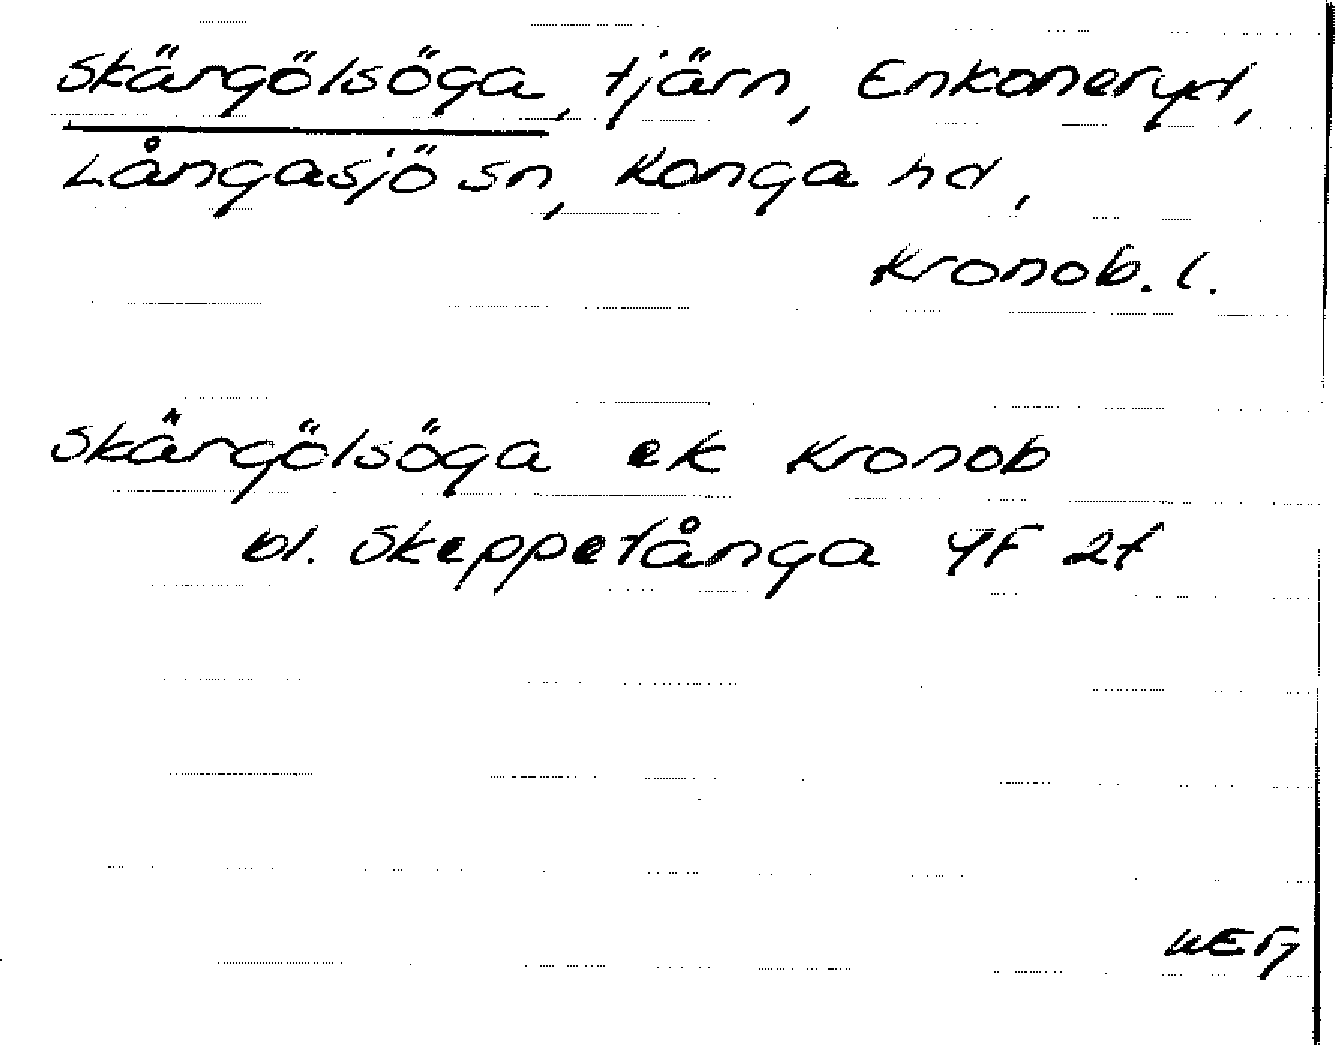 Skärgölsöga, tjärn, Enkoneryd,
Långasjö sn, Konga hd,
Kronob. l.
Skärgölsöga ek Kronob
bl. Skeppetånga 4F 2f